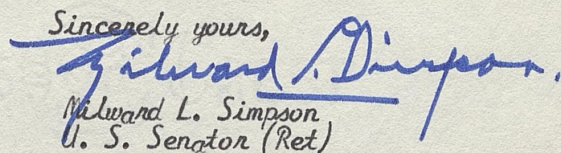 Sincerely yours,
Milward L. Simpson
Milward L. Simpson
U. S. Senator (Ret)